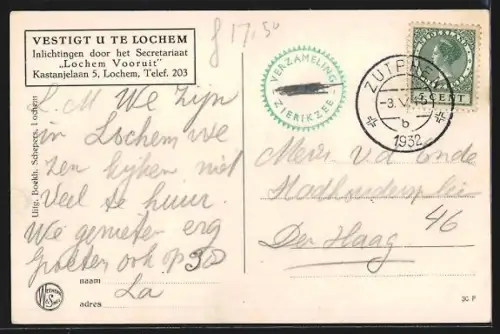 VESTIGT U TE LOCHEM
Inlichtingen door het Secretariaat
„Lochem Vooruit"
Kastanjelaan 5, Lochem, Telef. 203
f 17,50
VERZAMELING
ZIERIKZEE
ZUTPHEN
-3.V
6
1932
5 CENT
Uitg. Boekh. Schepers, Lochem
L.M We zijn
in Lochem we
zen kijken niet
Veel te huur.
We genieten erg
Groeten ook op
La
naam
adres
Mevr. v.d. Ende
Stadhoudersplein
46
Den Haag